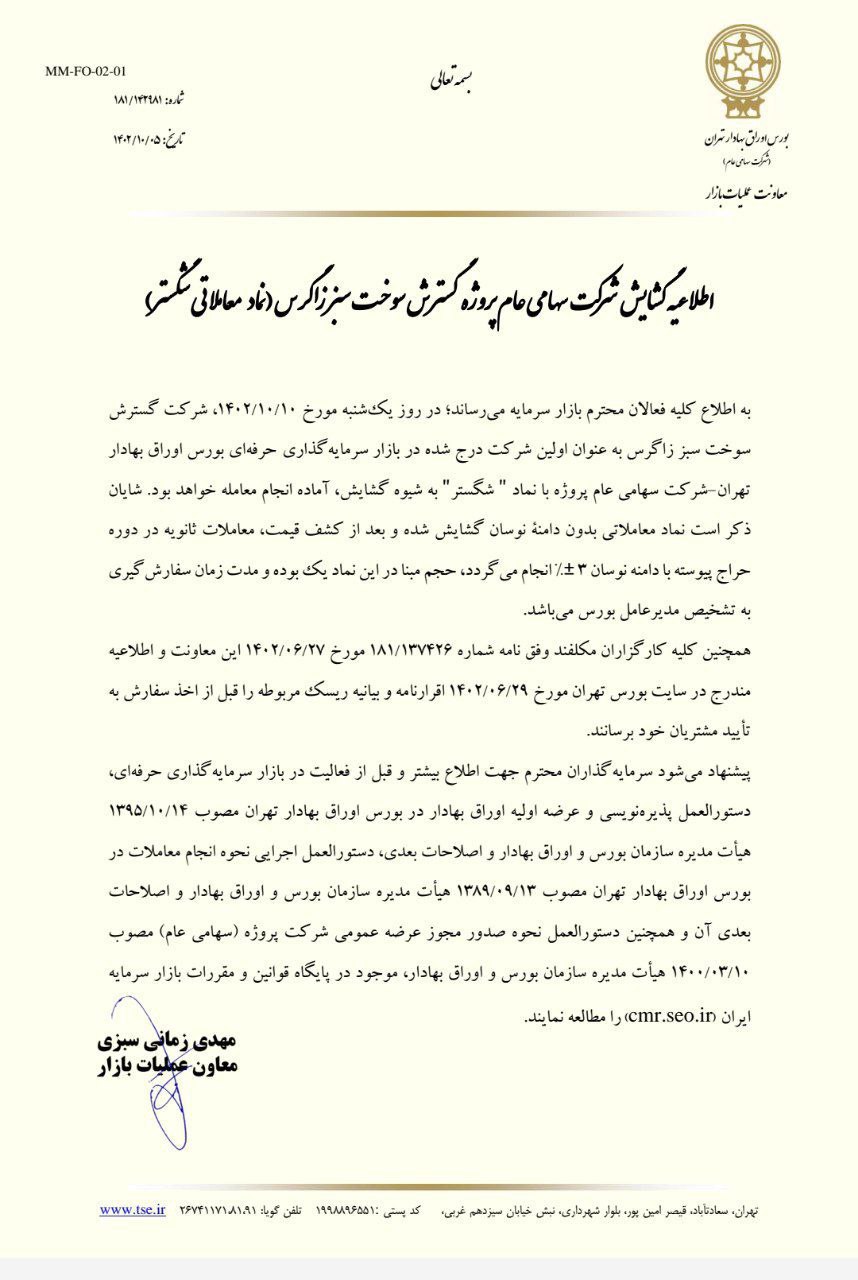 MM-FO-02-01
شماره: ۱۸۱/۱۴۲۹۸۱
تاریخ: ۱۴۰۲/۱۰/۰۵
بسمه تعالی
بورس اوراق بهادار تهران
(شرکت سهامی عام)
معاونت عملیات بازار
اطلاعیه گشایش شرکت سهامی عام پروژه گسترش سوخت سبز زاگرس (نماد معاملاتی شگستر)
به اطلاع کلیه فعالان محترم بازار سرمایه می‌رساند؛ در روز یک‌شنبه مورخ ۱۴۰۲/۱۰/۱۰، شرکت گسترش
سوخت سبز زاگرس به عنوان اولین شرکت درج شده در بازار سرمایه‌گذاری حرفه‌ای بورس اوراق بهادار
تهران–شرکت سهامی عام پروژه با نماد " شگستر" به شیوه گشایش، آماده انجام معامله خواهد بود. شایان
ذکر است نماد معاملاتی بدون دامنهٔ نوسان گشایش شده و بعد از کشف قیمت، معاملات ثانویه در دوره
حراج پیوسته با دامنه نوسان ۳ ±٪ انجام می‌گردد، حجم مبنا در این نماد یک بوده و مدت زمان سفارش‌گیری
به تشخیص مدیرعامل بورس می‌باشد.
همچنین کلیه کارگزاران مکلفند وفق نامه شماره ۱۸۱/۱۳۷۴۲۶ مورخ ۱۴۰۲/۰۶/۲۷ این معاونت و اطلاعیه
مندرج در سایت بورس تهران مورخ ۱۴۰۲/۰۶/۲۹ اقرارنامه و بیانیه ریسک مربوطه را قبل از اخذ سفارش به
تأیید مشتریان خود برسانند.
پیشنهاد می‌شود سرمایه‌گذاران محترم جهت اطلاع بیشتر و قبل از فعالیت در بازار سرمایه‌گذاری حرفه‌ای،
دستورالعمل پذیره‌نویسی و عرضه اولیه اوراق بهادار در بورس اوراق بهادار تهران مصوب ۱۳۹۵/۱۰/۱۴
هیأت مدیره سازمان بورس و اوراق بهادار و اصلاحات بعدی، دستورالعمل اجرایی نحوه انجام معاملات در
بورس اوراق بهادار تهران مصوب ۱۳۸۹/۰۹/۱۳ هیأت مدیره سازمان بورس و اوراق بهادار و اصلاحات
بعدی آن و همچنین دستورالعمل نحوه صدور مجوز عرضه عمومی شرکت پروژه (سهامی عام) مصوب
۱۴۰۰/۰۳/۱۰ هیأت مدیره سازمان بورس و اوراق بهادار، موجود در پایگاه قوانین و مقررات بازار سرمایه
ایران (cmr.seo.ir) را مطالعه نمایند.
مهدی زمانی سبزی
معاون عملیات بازار
تهران، سعادت‌آباد، قیصر امین پور، بلوار شهرداری، نبش خیابان سیزدهم غربی، کد پستی :۱۹۹۸۸۹۶۵۵۱ تلفن گویا: ۲۶۷۴۱۱۷۱،۸۱،۹۱ www.tse.ir